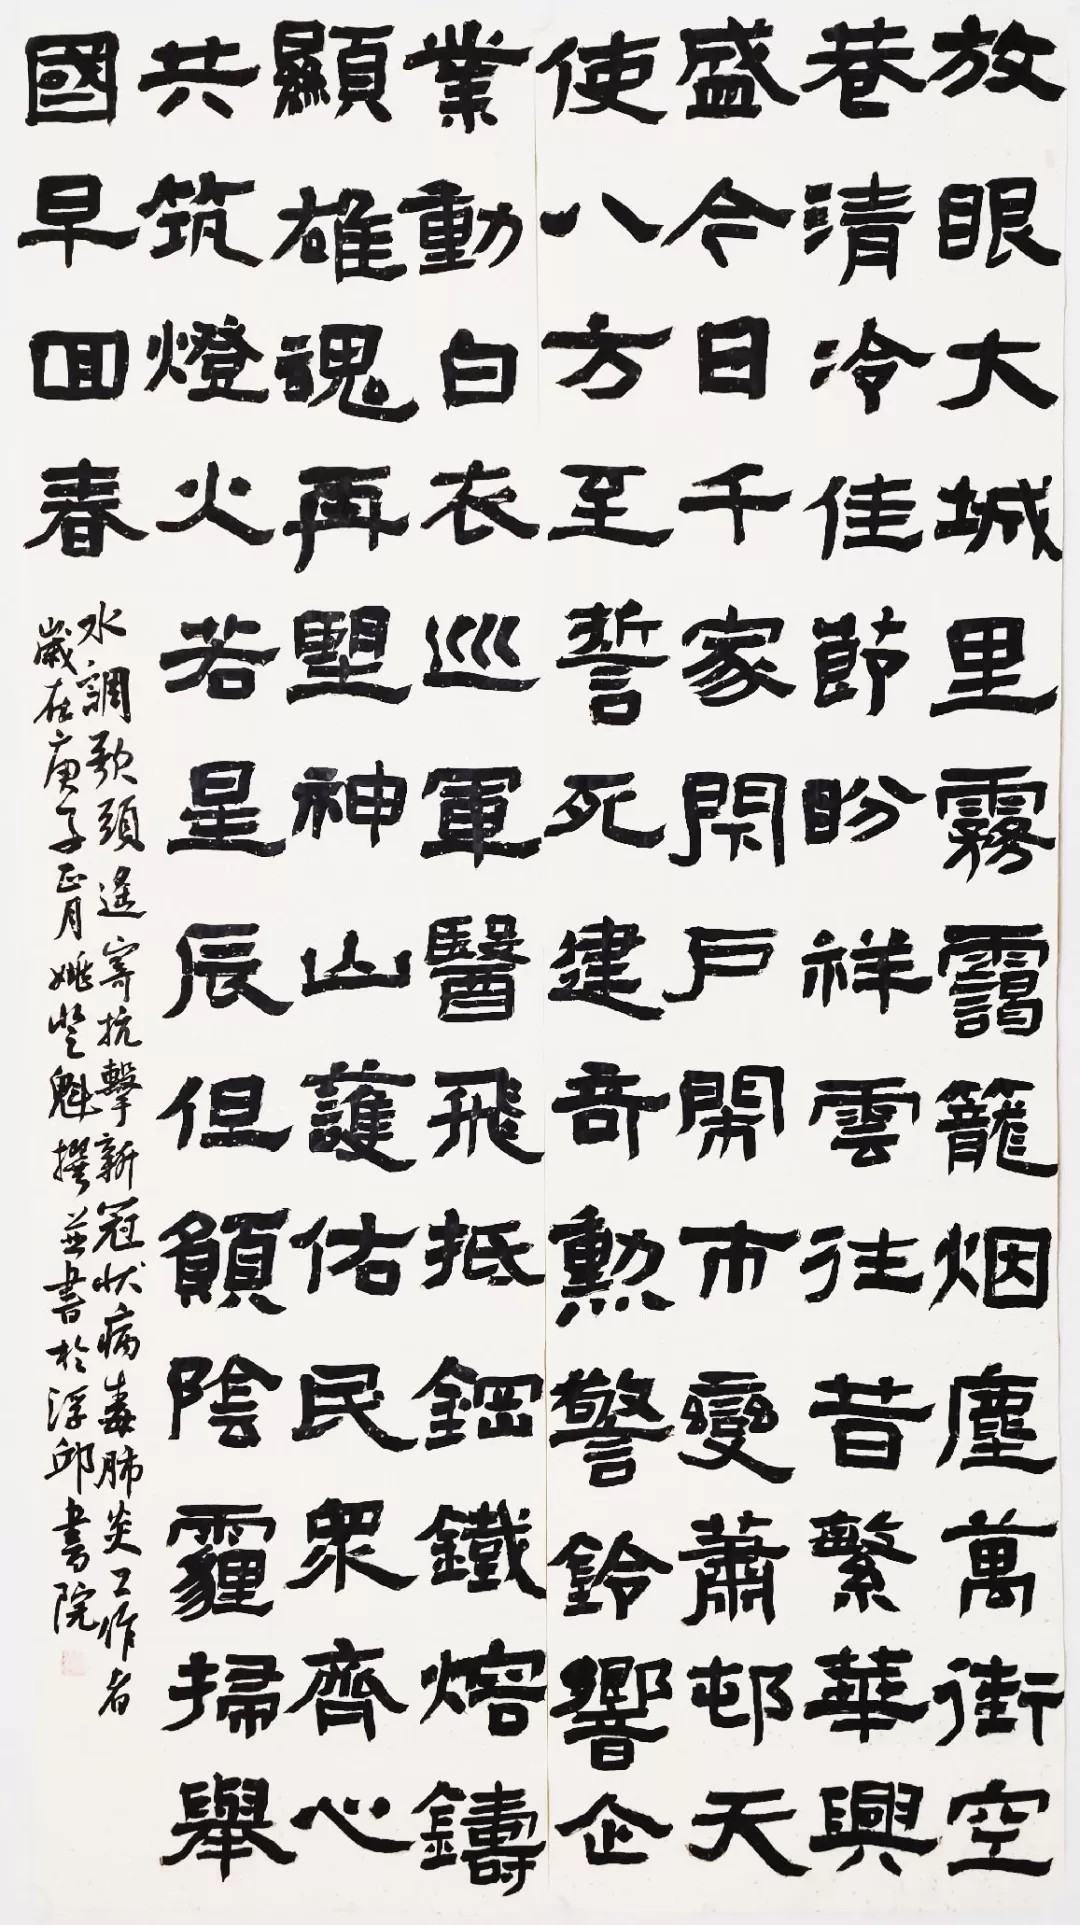 放眼大城里霧靄籠烟塵萬街空
巷清冷佳節盼祥雲往昔繁華興
盛今日千家閉戶閑市變蕭邨天
使八方至誓死建奇勲警鈴響企
業動白衣巡軍醫飛抵鋼鐵熔鑄
顯雄魂再塑神山護佑民眾齊心
共筑燈火若星辰但願陰霾掃舉
國早回春
水調歌頭遙寄抗擊新冠状病毒肺炎工作者
歲在庚子正月姚登魁撰並書於浮邱書院